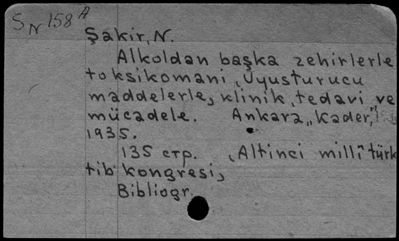 S N 158 A
Şakir, N.
Alkoldan başka zehirlerle
toksikomani, Uyusturucu
maddelerle, klinik, tedavi ve
mücadele. Ankara, „Kader,"
1935.
135 стр. „Altinci millî türk
tib kongresi„
Bibliogr.